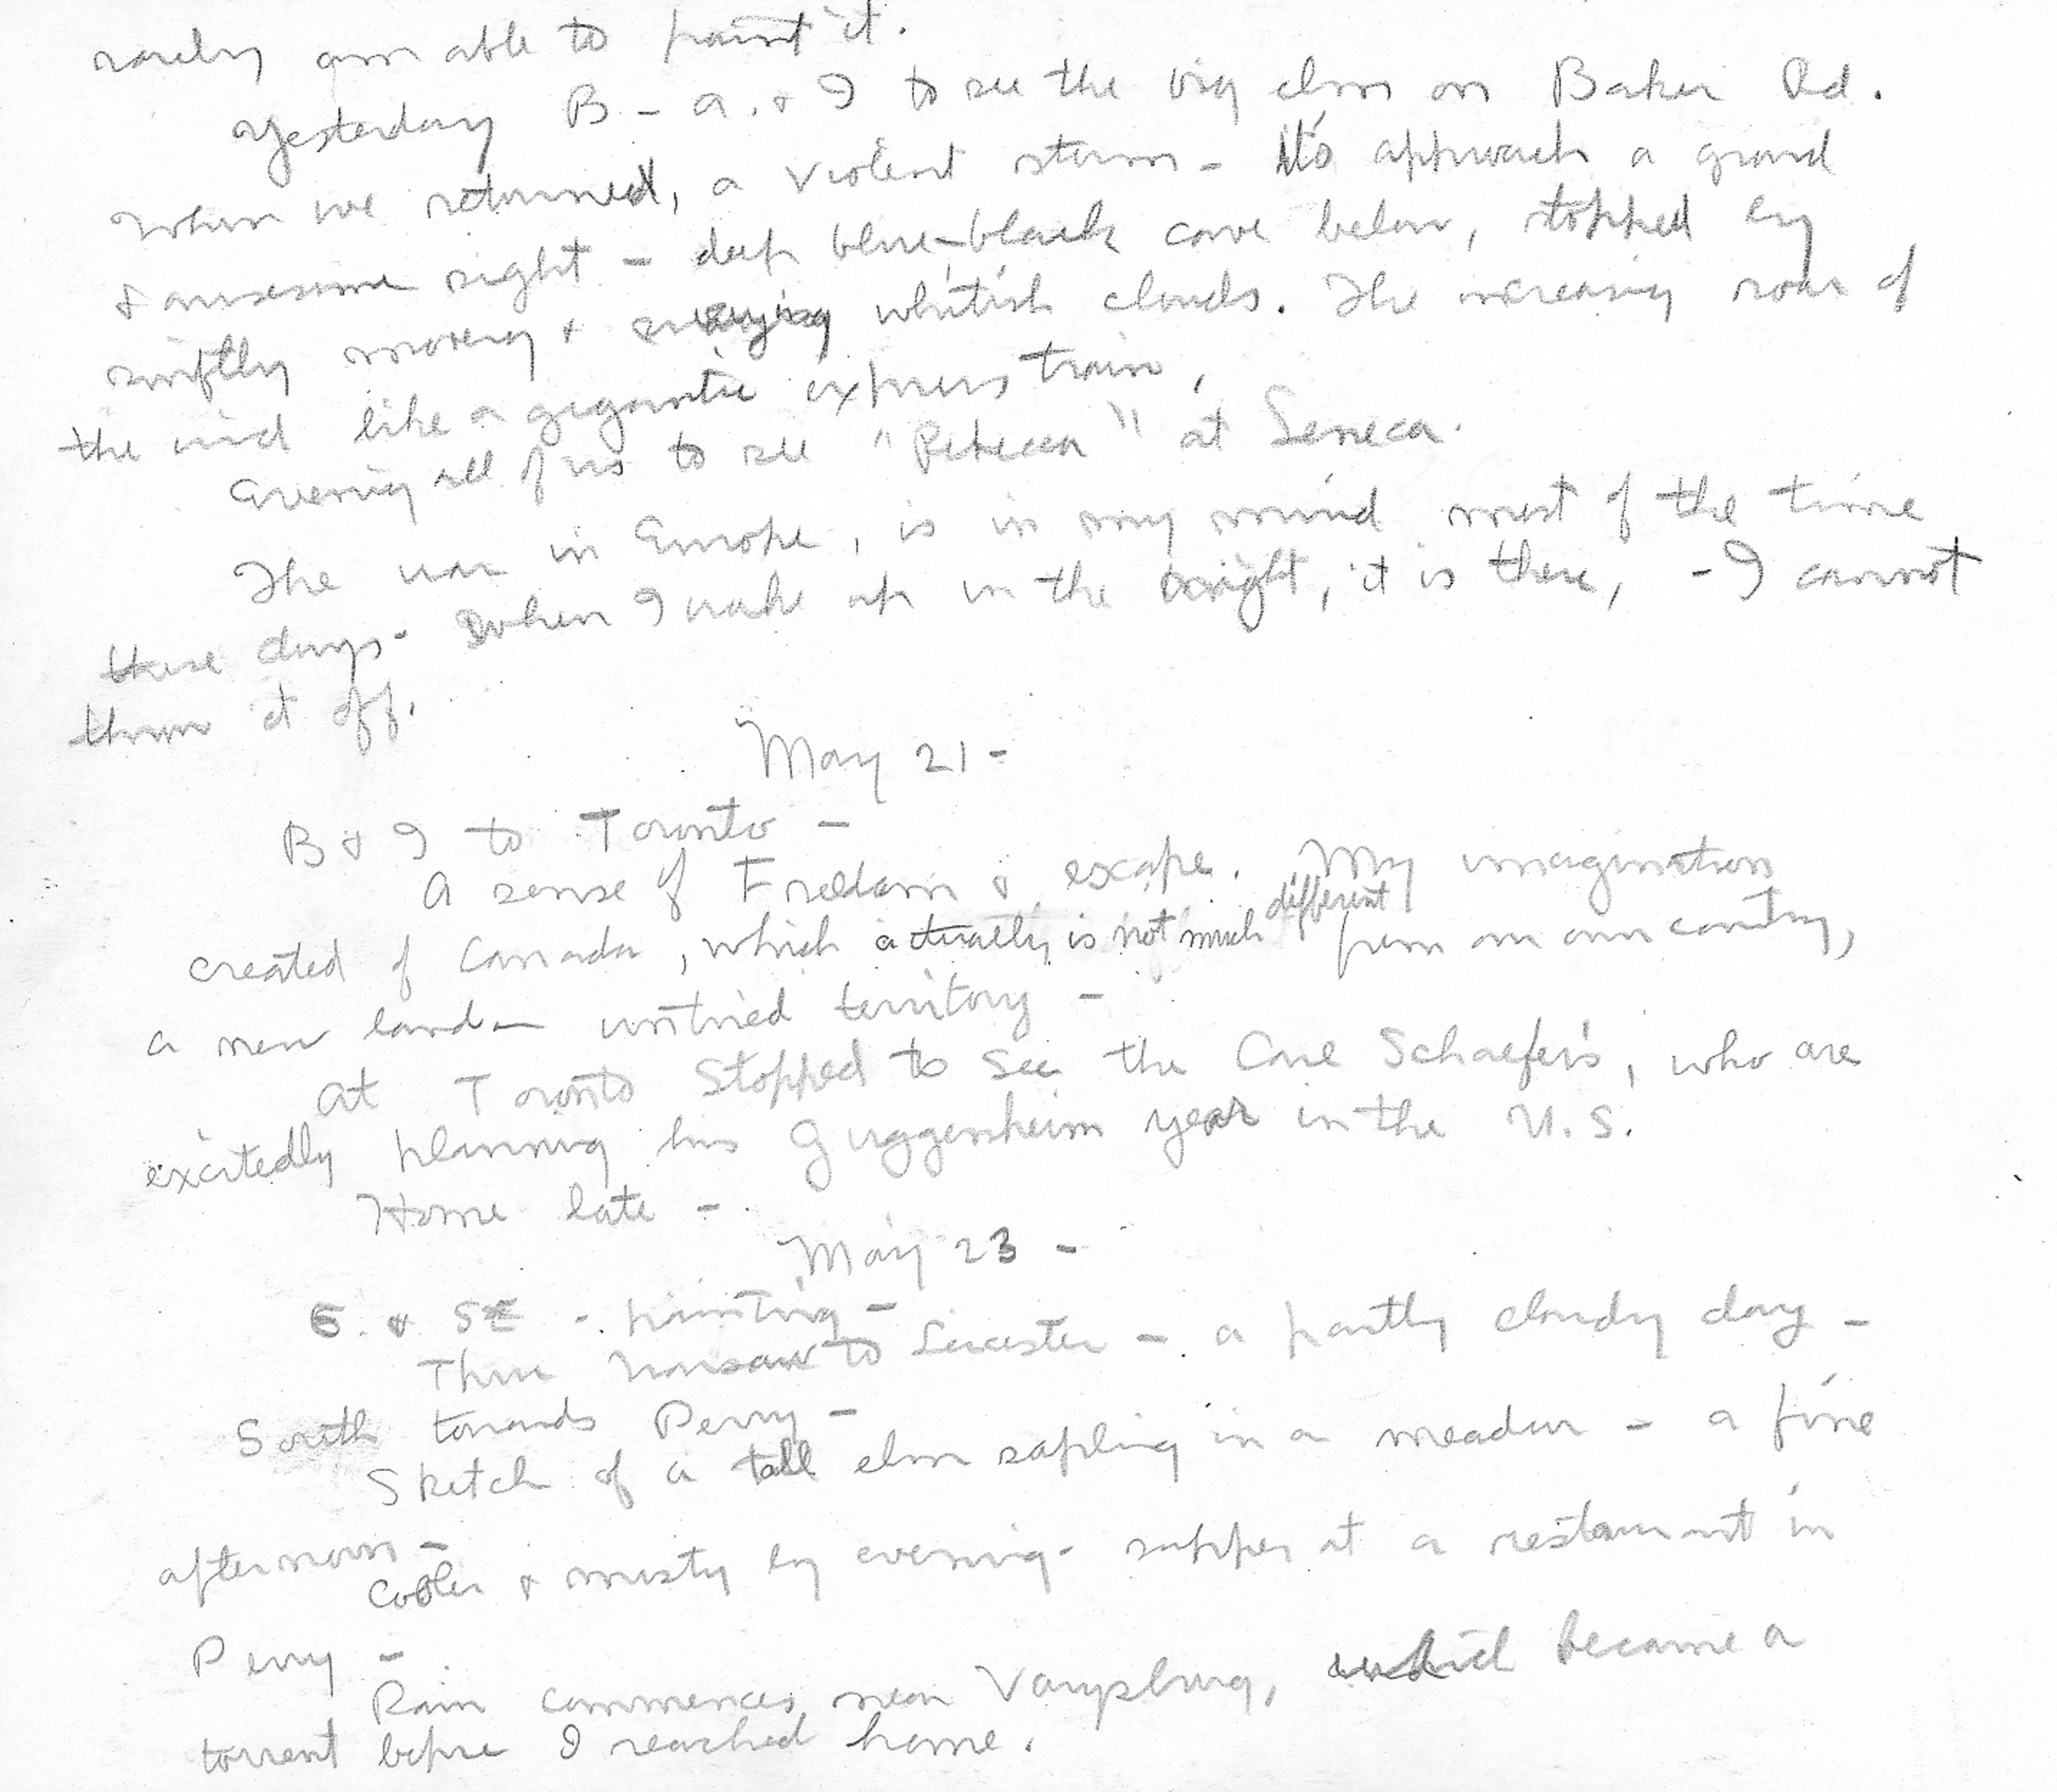 rarely am able to paint it.
Yesterday B - A. & I to see the big elm on Baker Rd.
When we returned, a violent storm - it's approach a grand
& awesome sight - deep blue-black cave below, topped by
swiftly moving & swaying whitish clouds. The increasing roar of
the wind like a gigantic express train,
Evening all of us to see "Rebecca" at Seneca.
The war in Europe, is in my mind most of the time
these days - When I wake up in the night, it is there, - I cannot
throw it off.
May 21 -
B & I to Toronto -
A sense of Freedom & escape. My imagination
created of Canada, which actually is not much different from our own country,
a new land - untried territory -
At Toronto stopped to see the Carl Schaefer's, who are
excitedly planning his Guggenheim year in the U.S.
Home late -
May 23 -
E. & SE - painting -
Thru Warsaw to Leicester - a partly cloudy day -
South towards Perry -
Sketch of a tall elm sapling in a meadow - a fine
afternoon -
Cooler & misty by evening - supper at a restaurant in
Perry -
Rain commences near Varysburg, which became a
torrent before I reached home.